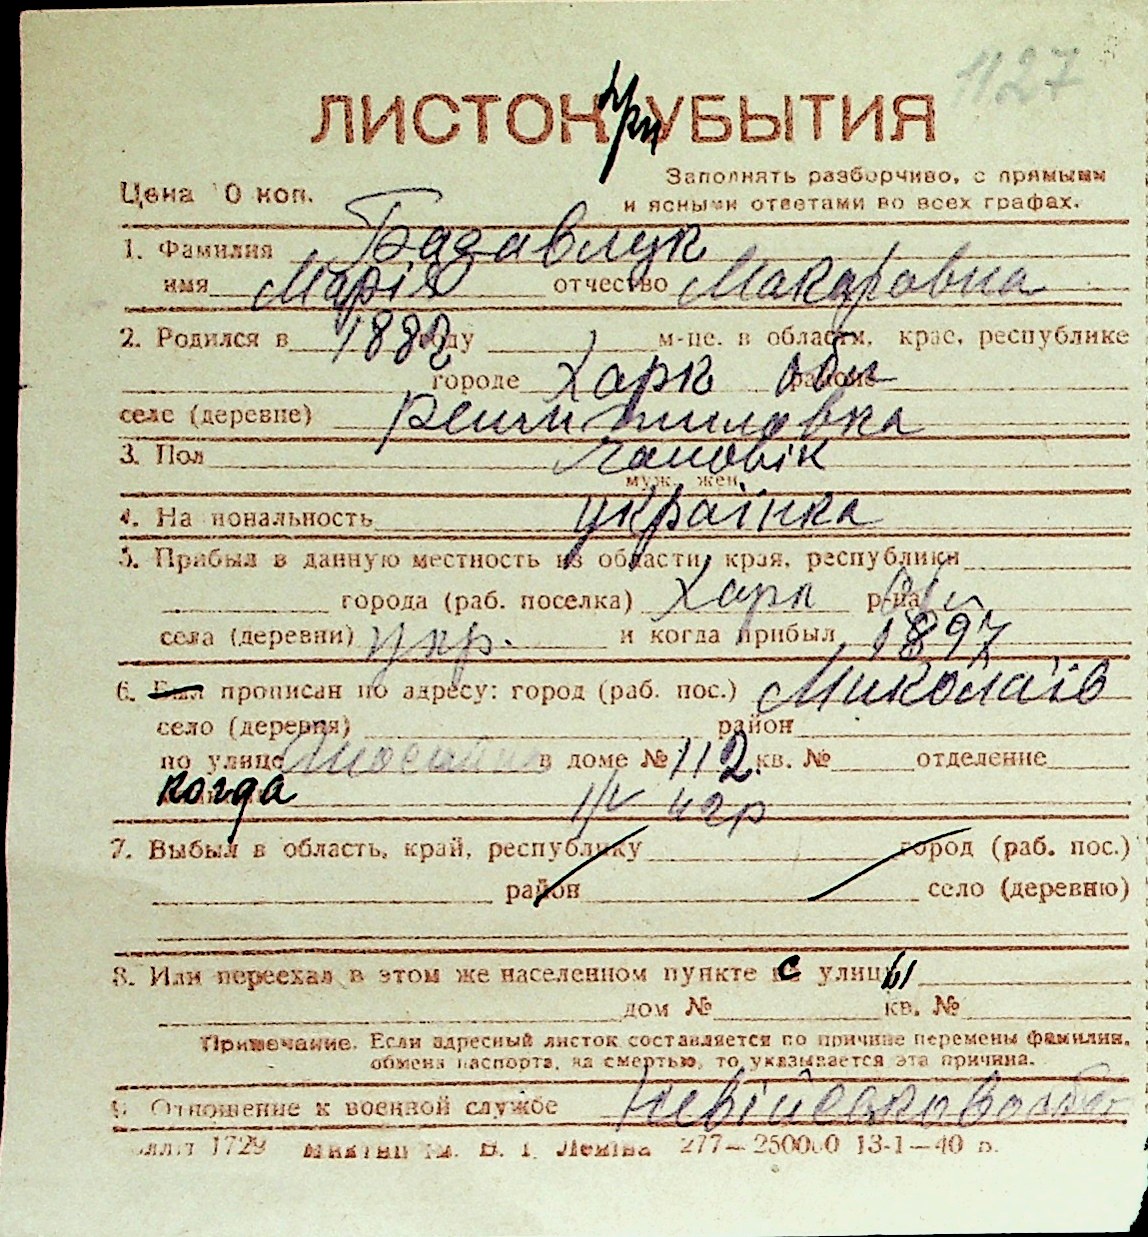 1127
ЛИСТОК при УБЫТИЯ
Цена 10 коп.
Заполнять разборчиво, с прямыми
и ясными ответами во всех графах.
1. Фамилия Базавлук
имя Марія отчество Макаровна
2. Родился в 1882 году м-це. в области, крае, республике
городе Харк обл районе
селе (деревне)
3. Пол чоловік
муж. жен.
4. Национальность українка
5. Прибыл в данную местность из области, края, республики
города (раб. поселка) Харк р-на обл
села (деревни) укр. и когда прибыл 1897
6. Был прописан по адресу: город (раб. пос.) Миколаїв
село (деревня) район
по улице в доме № 112 кв. № отделение
когда
7. Выбыл в область, край, республику город (раб. пос.)
район село (деревню)
8. Или переехал в этом же населенном пункте с улицы
дом № кв. №
Примечание. Если адресный листок составляется по причине перемены фамилии,
обмена паспорта, за смертью, то указывается эта причина.
9. Отношение к военной службе
1729 им. В. І. Леніна 277—250000 13-1-40 р.